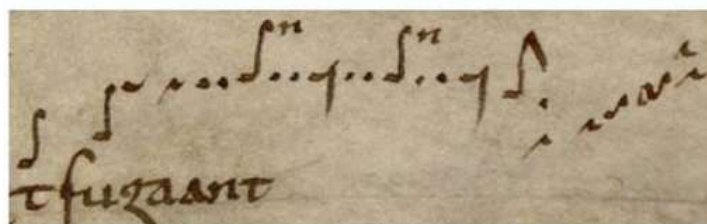 n n
t fugaant